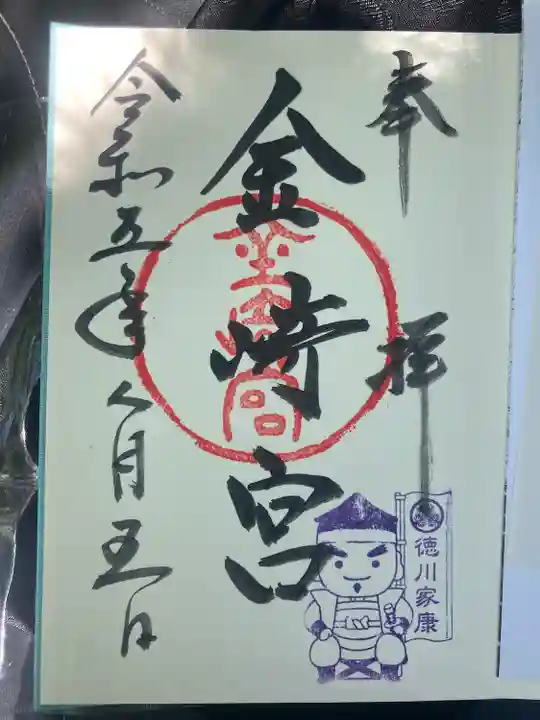 奉拝
金崎宮
金崎宮
徳川家康
令和五年八月五日